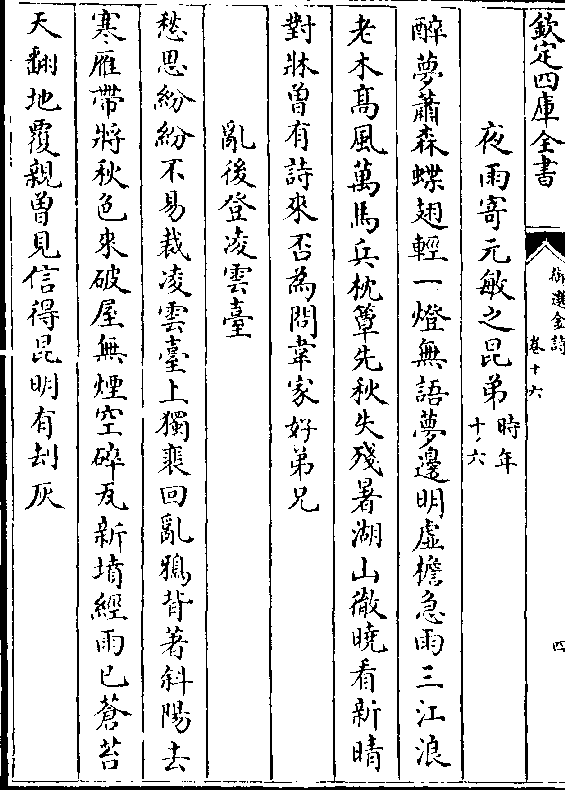 欽定四庫全書
御選金詩
卷十六
四
夜雨寄元敏之昆弟時年
十六
醉夢蕭森蝶翅輕一燈無語夢邊明虛檐急雨三江浪
老木髙風萬馬兵枕簟先秋失殘暑湖山徹曉看新晴
對牀曾有詩來否為問韋家好弟兄
亂後登凌雲臺
愁思紛紛不易裁凌雲臺上獨裵回亂鴉背著斜陽去
寒雁帶將秋色來破屋無煙空碎瓦新墳經雨已蒼苔
天翻地覆親曾見信得昆明有刦灰